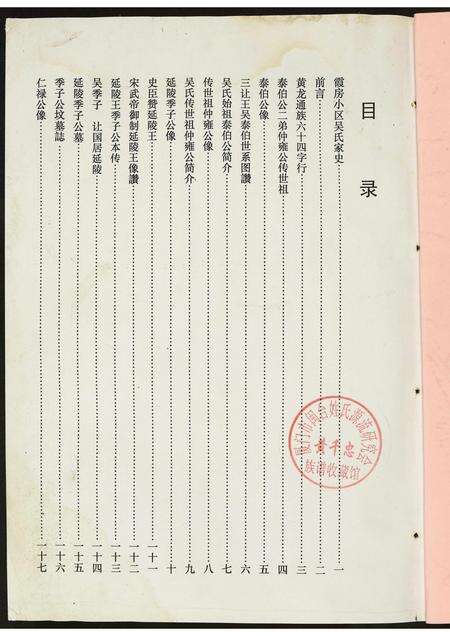 目录
霞房小区吴氏家史……一
前言……二
黄龙通族六十四字行……三
泰伯公二弟仲雍公传世祖……四
泰伯公像……五
三让王吴泰伯世系图讚……六
吴氏始祖泰伯公简介……七
传世祖仲雍公像……八
吴氏传世祖仲雍公简介……九
延陵季子公像……十
史臣赞延陵王……十一
宋武帝御制延陵王像讚……十二
延陵王季子公本传……十三
吴季子 让国居延陵……十四
延陵季子公墓……十五
季子公坟墓誌……十六
仁禄公像……十七
厦门市闽台姓氏源流研究会
黄千忠
族谱收藏馆